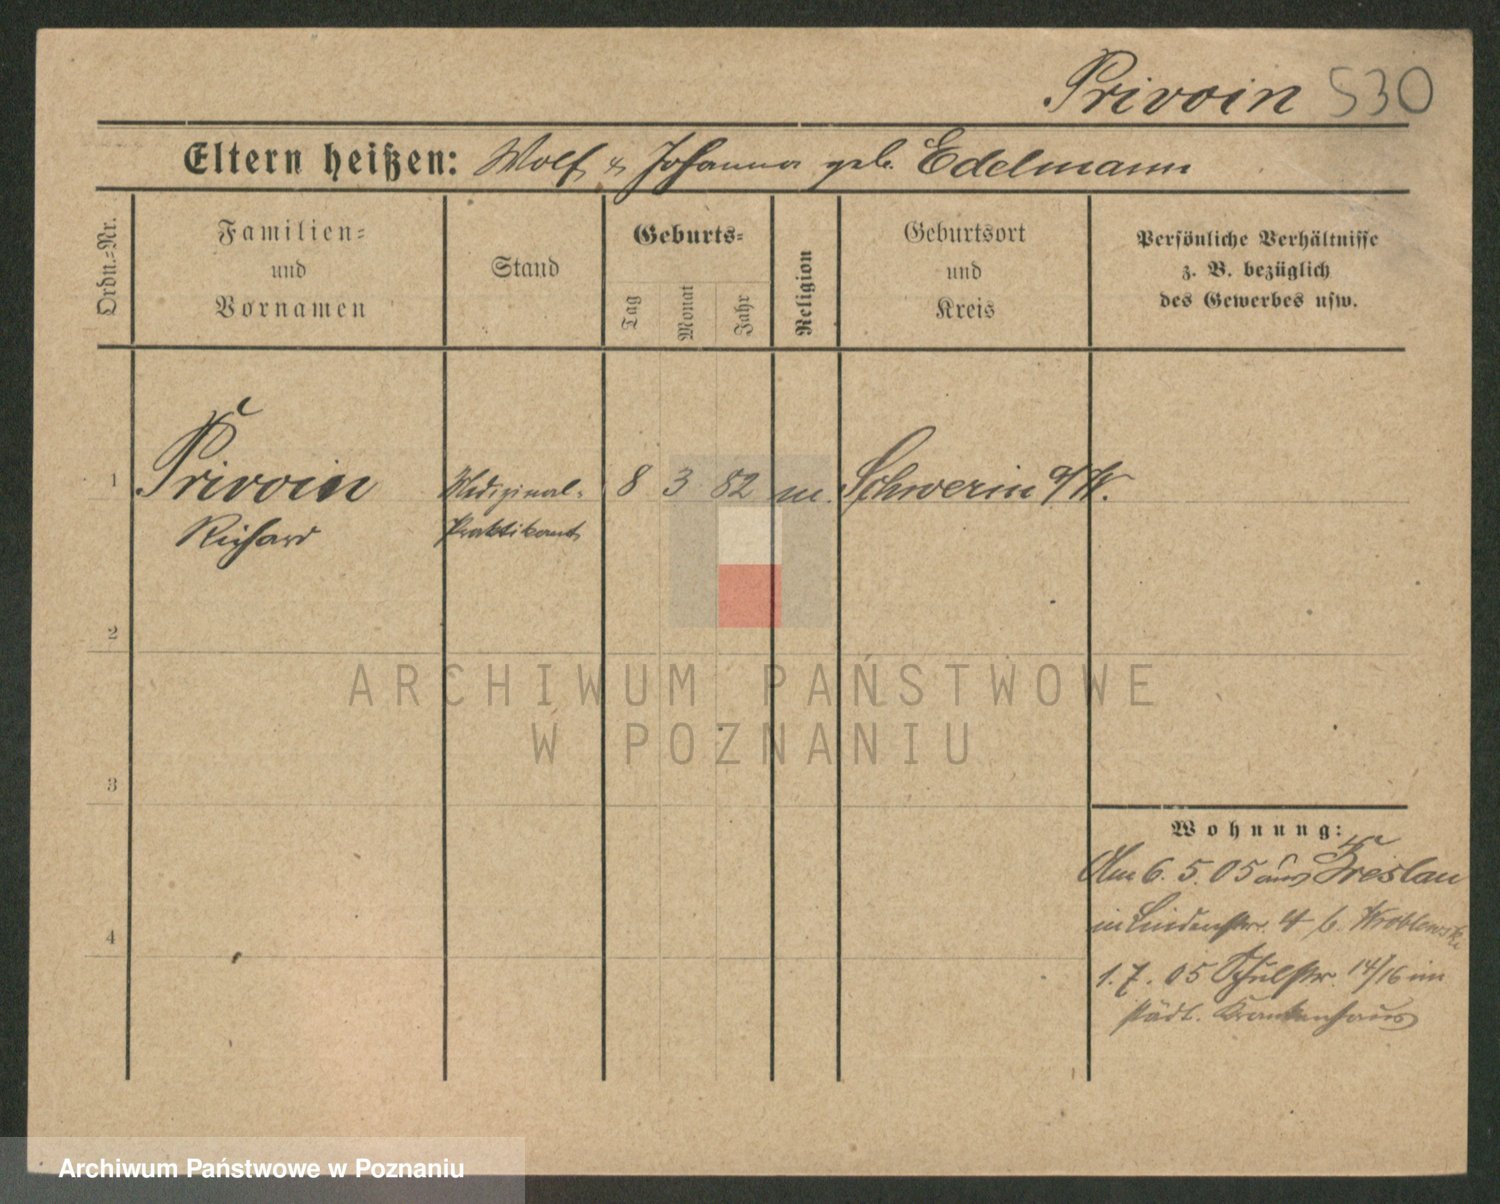 Privoin 530
Eltern heißen: Wolf u. Johanna geb. Edelmann
Ordn.-Nr.
Familien-
und
Vornamen
Stand
Geburts-
Tag
Monat
Jahr
Religion
Geburtsort
und
Kreis
Persönliche Verhältnisse
z. B. bezüglich
des Gewerbes usw.
1 Privoin Medizinal- 8 3 82 m. Schwerin a/W.
Richard Praktikant
2
ARCHIWUM PAŃSTWOWE
W POZNANIU
3
Wohnung:
Am 6. 5. 05 aus Breslau
in Lindenstr. 4 b. Wroblewski
4
1. 7. 05 Schulstr. 14/16 im
städt. Krankenhaus
Archiwum Państwowe w Poznaniu